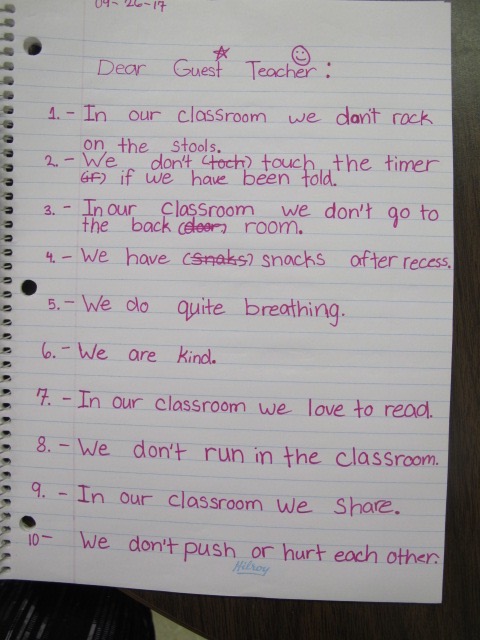 09-26-17
Dear Guest Teacher:
1.- In our classroom we don't rock
on the stools.
2.- We don't (toch) touch the timer
(if) if we have been told.
3.- In our classroom we don't go to
the back (door) room.
4.- We have (snaks) snacks after recess.
5.- We do quite breathing.
6.- We are kind.
7.- In our classroom we love to read.
8.- We don't run in the classroom.
9.- In our classroom we share.
10- We don't push or hurt each other.
Hilroy